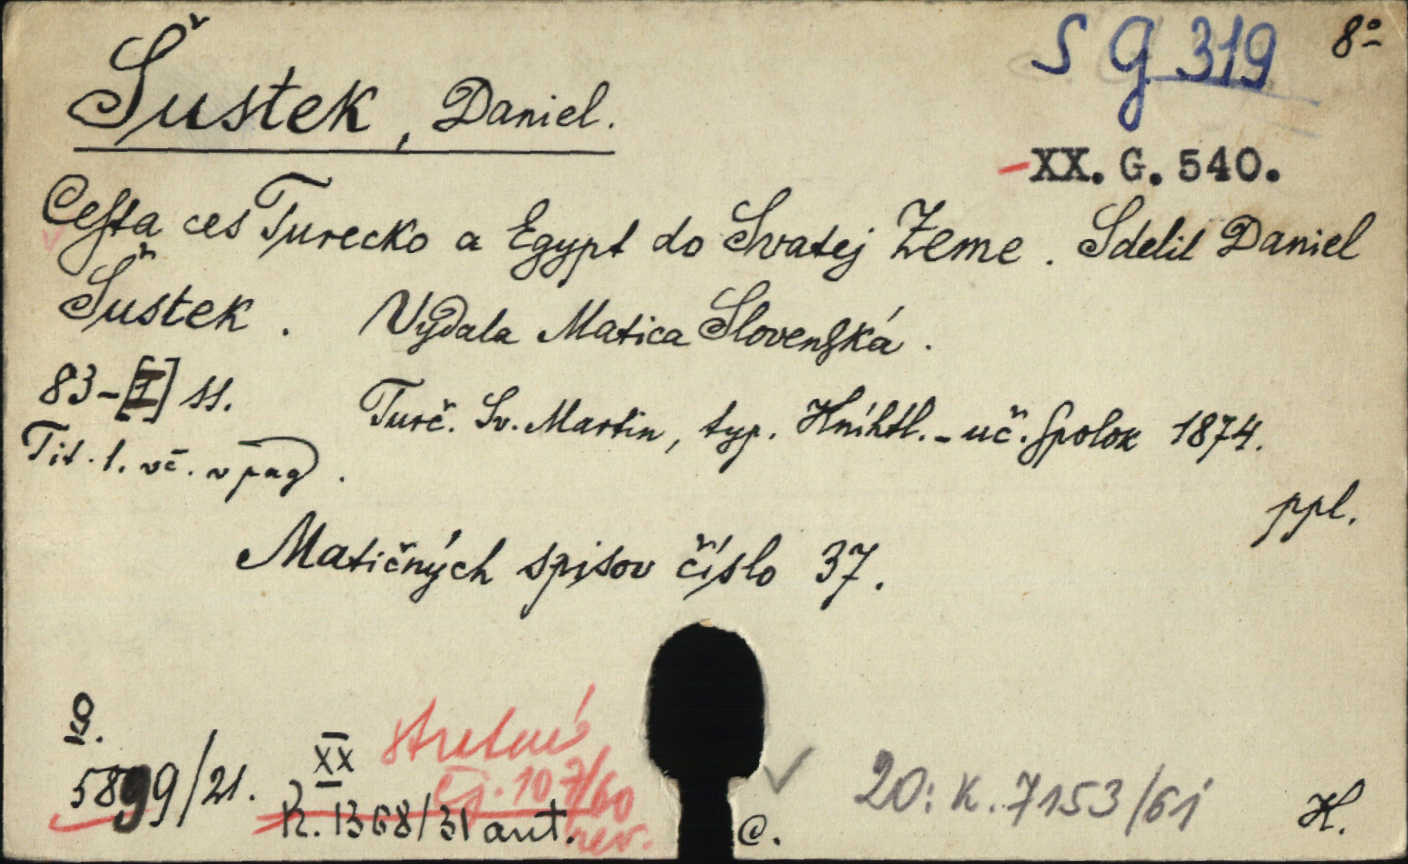 Šustek, Daniel.
S g 319
8°
XX. G. 540.
Cesta ces Turecko a Egypt do Svatej Zeme. Sdelil Daniel
Šustek. Vydala Matica Slovenská.
83-[1] ss.
Turč. Sv. Martin, typ. Kníhtl.-uč. spolok 1874.
Tit. l. vč. v pag.
ppl.
Matičných spisov číslo 37.
9.
5899/21.
XX
K. 1368/31 ant.
čj. 107/60
rev.
C.
20: K. 7153/61
H.